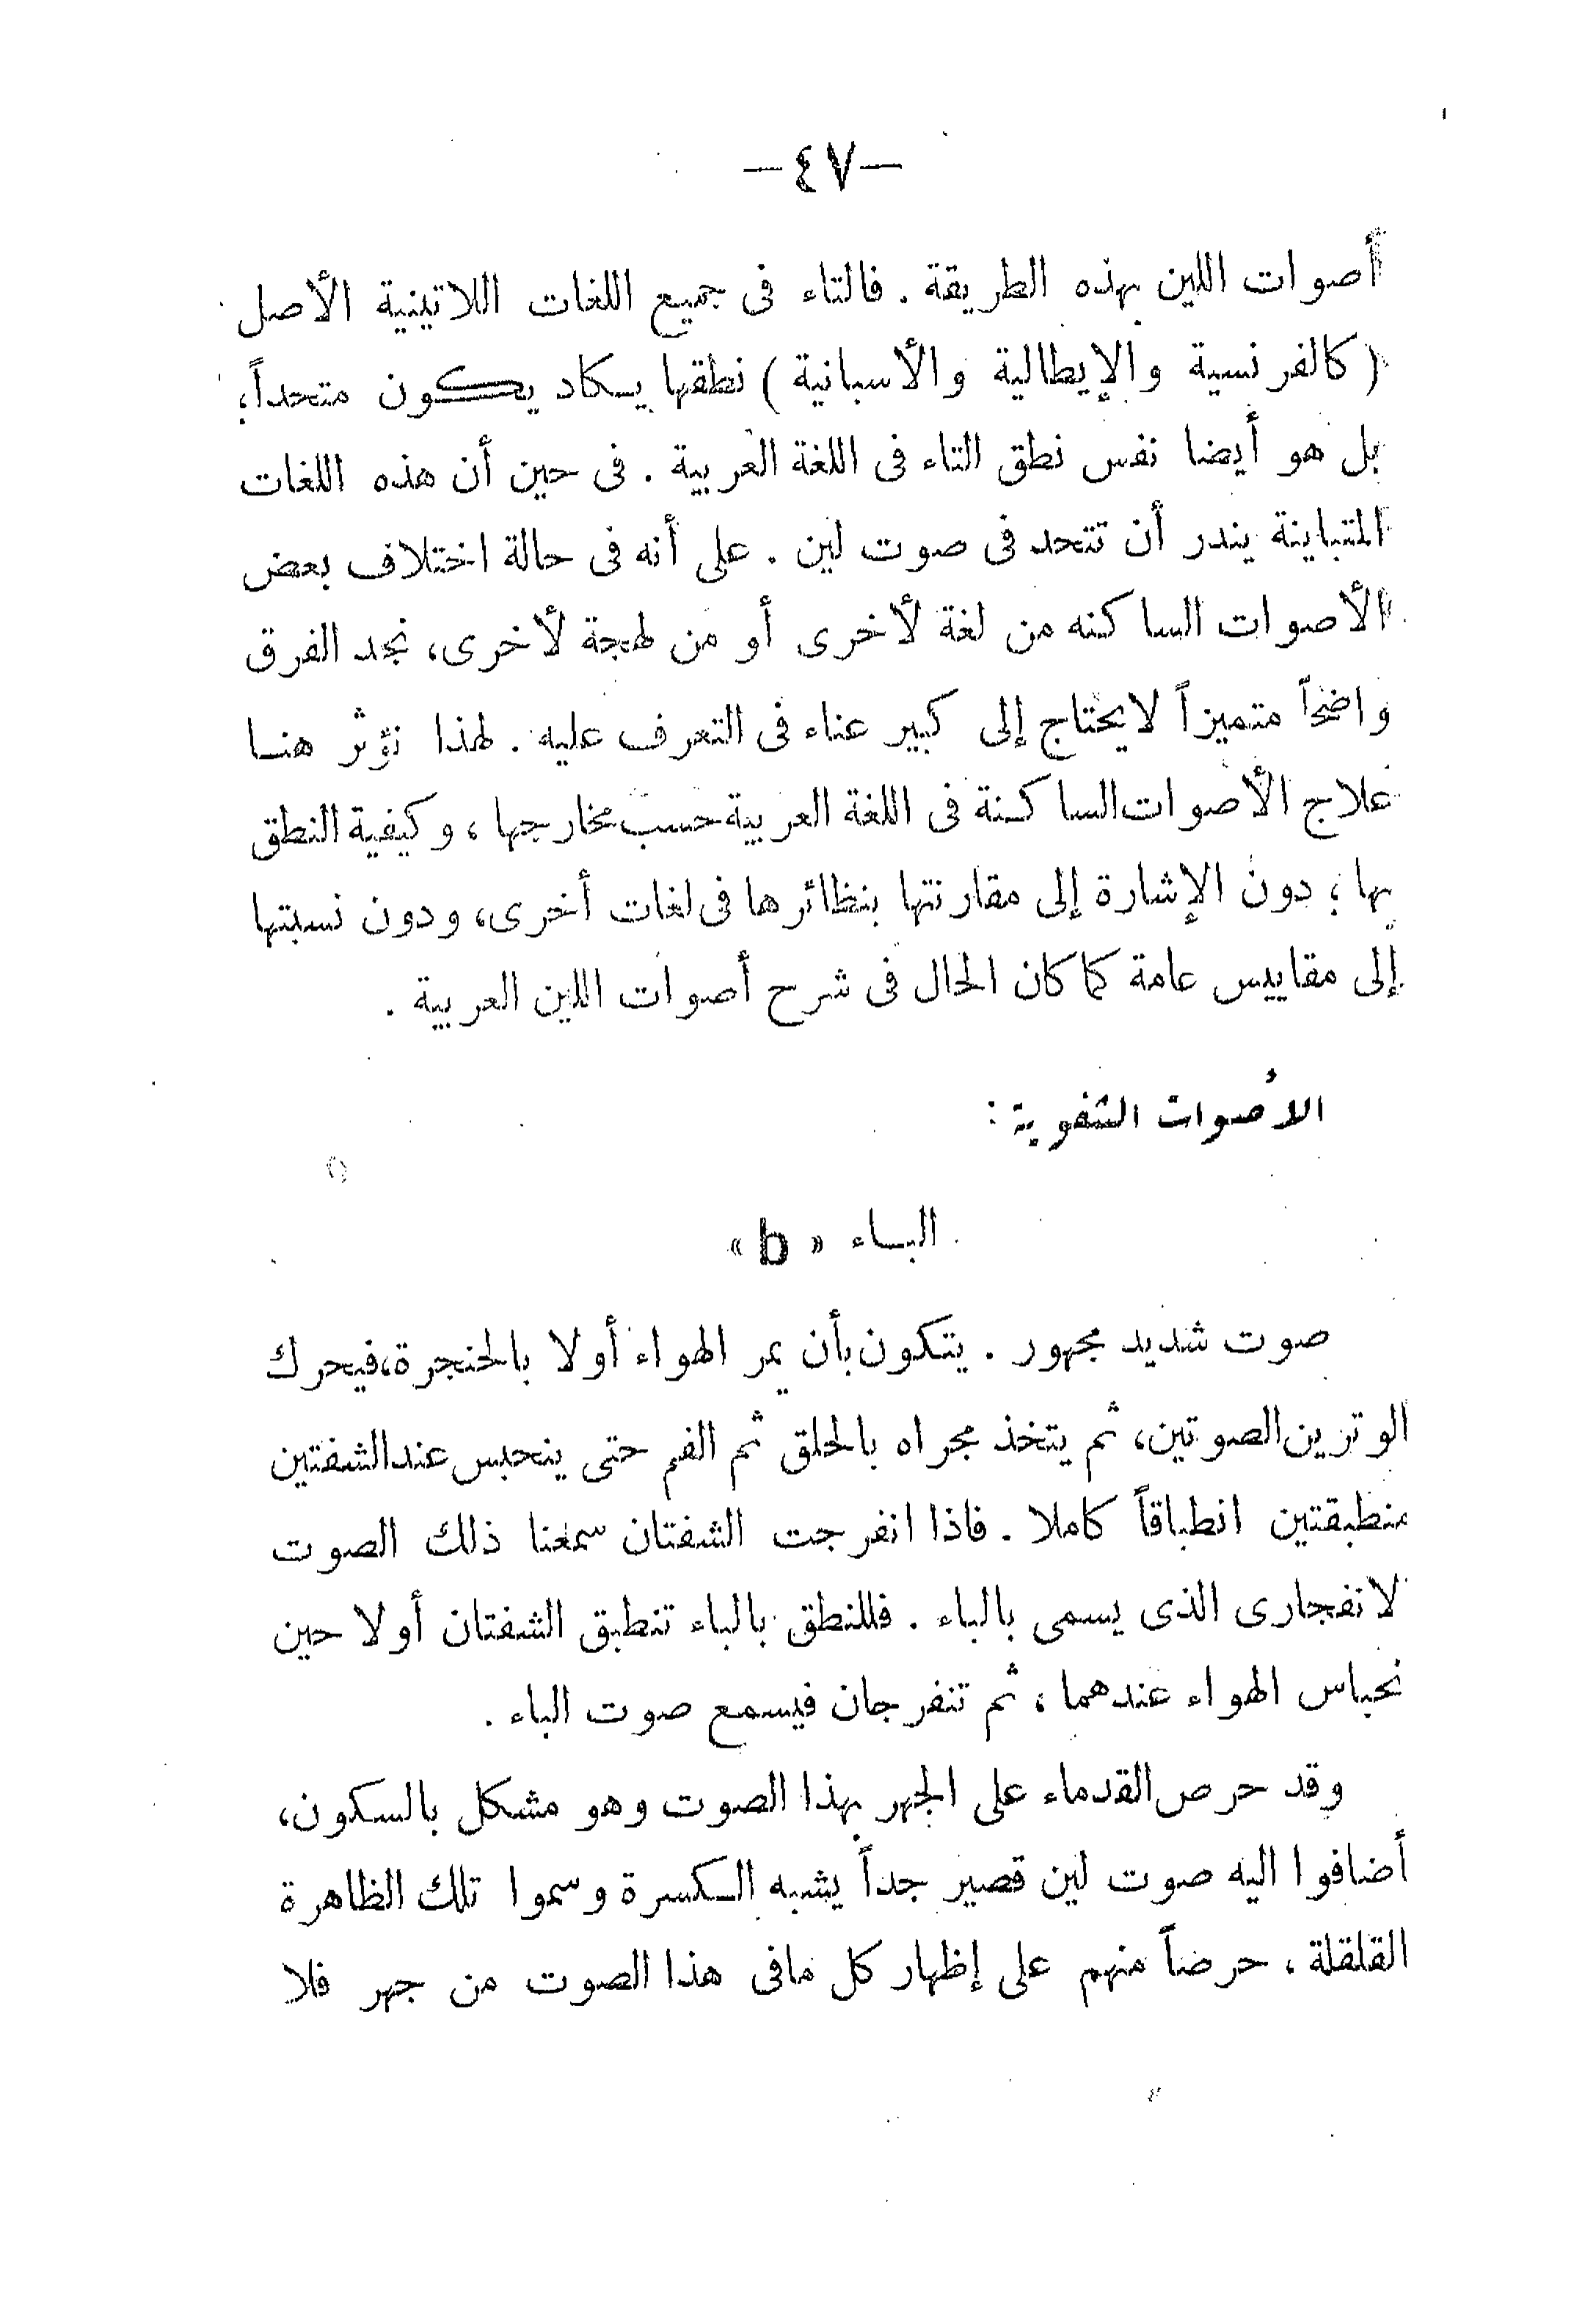 —٤٧—
أصوات اللين بهذه الطريقة . فالتاء فى جميع اللغات اللاتينية الأصل
( كالفرنسية والإيطالية والأسبانية ) نطقها يكاد يكون متحداً،
بل هو أيضا نفس نطق التاء فى اللغة العربية . فى حين أن هذه اللغات
المتباينة يندر أن تتحد فى صوت لين . على أنه فى حالة اختلاف بعض
الأصوات الساكنه من لغة لأخرى أو من لهجة لأخرى، نجد الفرق
واضحاً متميزاً لايحتاج إلى كبير عناء فى التعرف عليه . لهذا نؤثر هنا
علاج الأصوات الساكنة فى اللغة العربية حسب مخارجها ، وكيفية النطق
بها ؛ دون الإشارة إلى مقارنتها بنظائرها فى لغات أخرى، ودون نسبتها
إلى مقاييس عامة كما كان الحال فى شرح أصوات اللين العربية .
الأصوات الشفوية :
الباء « b »
صوت شديد مجهور . يتكون بأن يمر الهواء أولا بالحنجرة، فيحرك
الوترين الصوتين، ثم يتخذ مجراه بالحلق ثم الفم حتى ينحبس عند الشفتين
منطبقتين انطباقاً كاملا . فاذا انفرجت الشفتان سمعنا ذلك الصوت
لانفجارى الذى يسمى بالباء . فللنطق بالباء تنطبق الشفتان أولا حين
نحباس الهواء عندهما ، ثم تنفرجان فيسمع صوت الباء .
وقد حرص القدماء على الجهر بهذا الصوت وهو مشكل بالسكون،
أضافوا اليه صوت لين قصير جداً يشبه الكسرة وسموا تلك الظاهرة
القلقلة ، حرضاً منهم على إظهار كل مافى هذا الصوت من جهر فلا